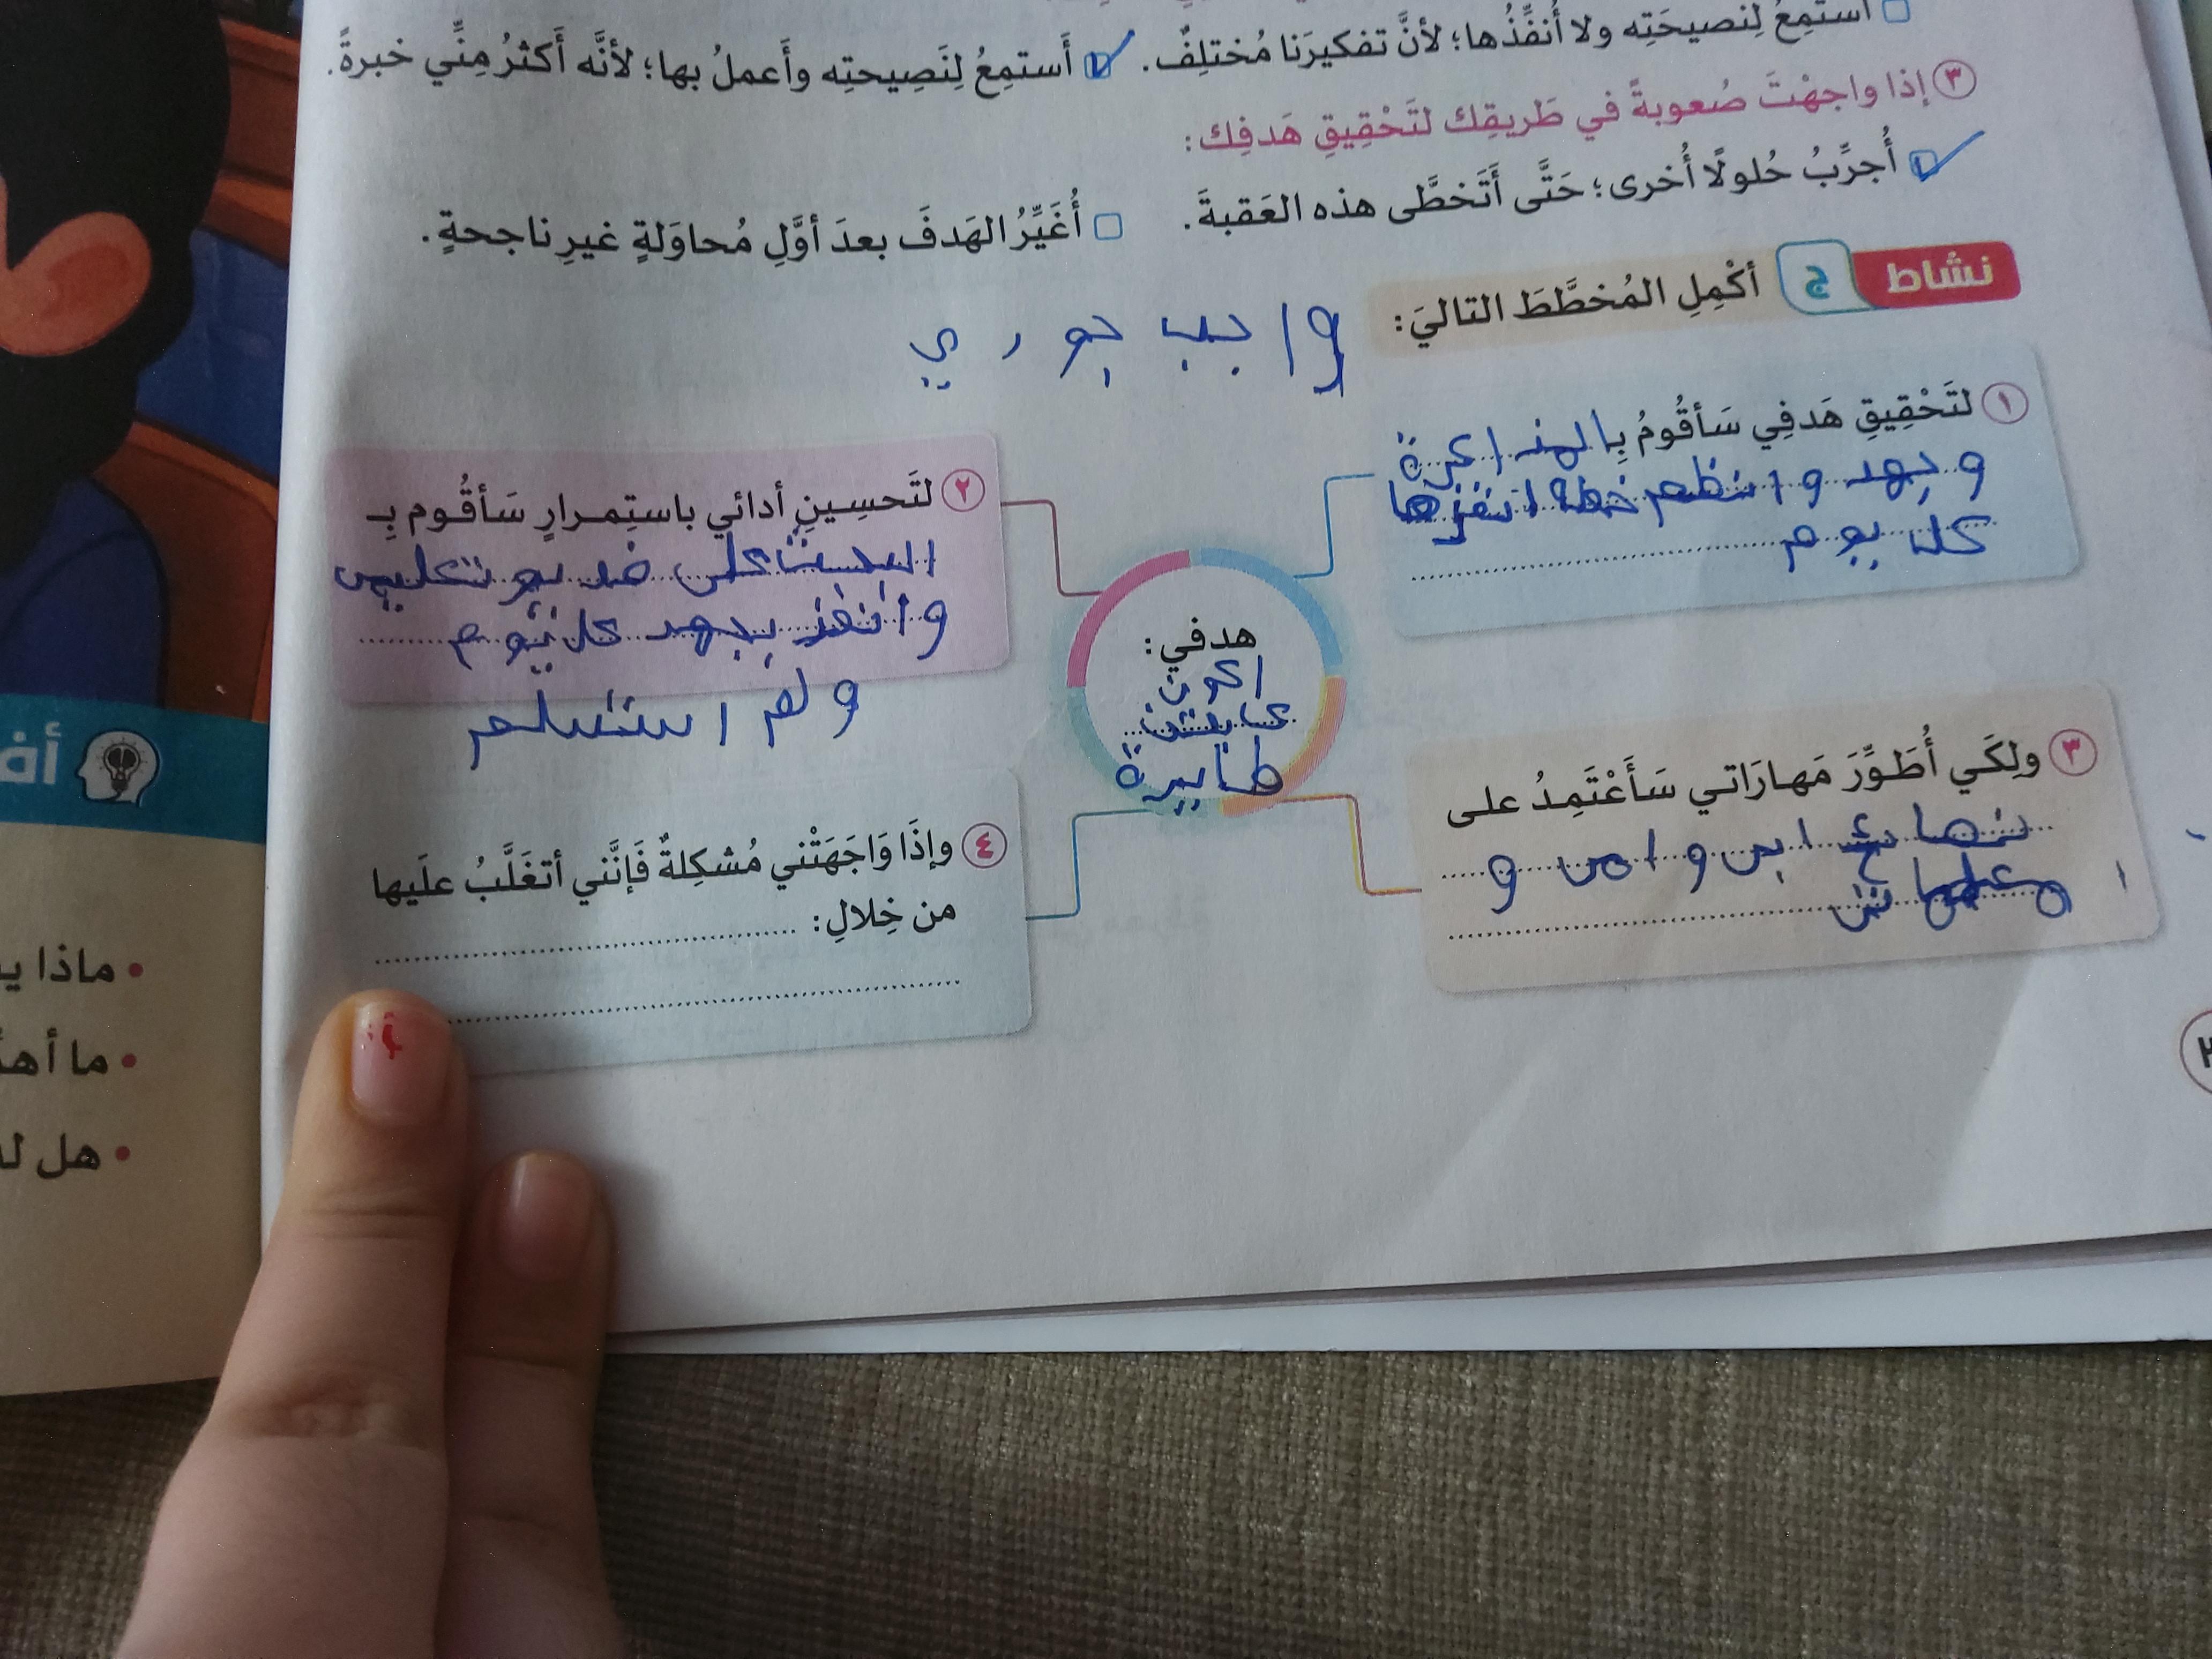 أستمِعُ لِنصيحَتِه ولا أُنفِّذُها؛ لأنَّ تفكيرَنا مُختلِفٌ. أَستمِعُ لِنَصِيحتِه وأَعملُ بها؛ لأنَّه أَكثرُ مِنِّي خبرةً.
٣ إذا واجهْتَ صُعوبةً في طَريقِك لتَحْقِيقِ هَدفِك:
أُجرِّبُ حُلولًا أُخرى؛ حَتَّى أَتَخطَّى هذه العَقبةَ. أُغَيِّرُ الهَدفَ بعدَ أوَّلِ مُحاوَلةٍ غيرِ ناجحةٍ.
نشاط ج أكْمِلِ المُخطَّطَ التاليَ:
واجب جوري
١ لتَحْقِيقِ هَدفِي سَأقُومُ بِالمذاكرة
وبجهد وانظم خطة انفزها
كل يوم
٢ لتَحسِينِ أدائي باستِمرارٍ سَأقُوم بِـ
البحث على فديو تعليمي
وانفز بجهد كل يوم
ولم استسلم
هدفي:
اكون
كابتن
طايرة
٣ ولِكَي أُطَوِّرَ مَهارَاتي سَأَعْتَمِدُ على
نصائح ابي وامي و
معلماتي
٤ وإذَا وَاجَهَتْني مُشكِلةٌ فَإنَّني أتغَلَّبُ علَيها
من خِلالِ:
أف
ماذا
ما
هل